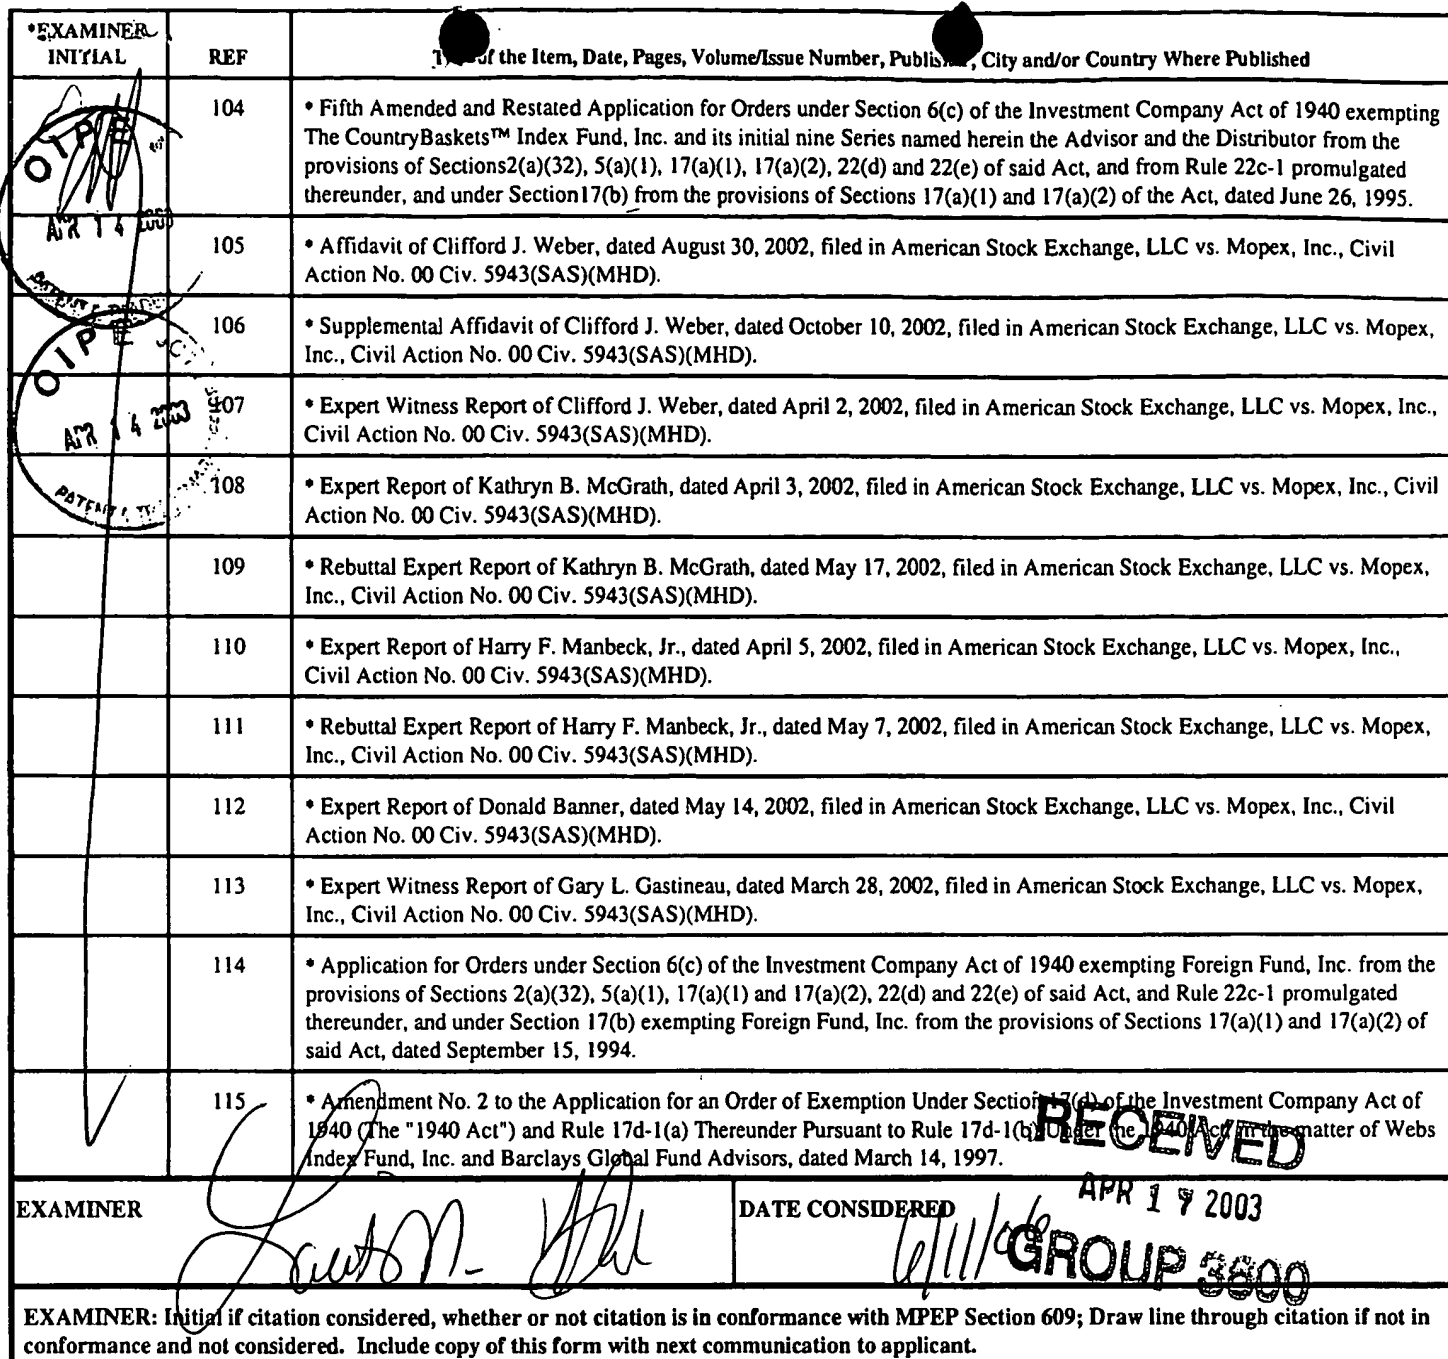 *EXAMINER INITIAL
REF
of the Item, Date, Pages, Volume/Issue Number, City and/or Country Where Published
104
* Fifth Amended and Restated Application for Orders under Section 6(c) of the Investment Company Act of 1940 exempting
The CountryBaskets™ Index Fund, Inc. and its initial nine Series named herein the Advisor and the Distributor from the
provisions of Sections2(a)(32), 5(a)(1), 17(a)(1), 17(a)(2), 22(d) and 22(e) of said Act, and from Rule 22c-1 promulgated
thereunder, and under Section17(b) from the provisions of Sections 17(a)(1) and 17(a)(2) of the Act, dated June 26, 1995.
OIPE
APR 14 2003
105
* Affidavit of Clifford J. Weber, dated August 30, 2002, filed in American Stock Exchange, LLC vs. Mopex, Inc., Civil
Action No. 00 Civ. 5943(SAS)(MHD).
106
* Supplemental Affidavit of Clifford J. Weber, dated October 10, 2002, filed in American Stock Exchange, LLC vs. Mopex,
Inc., Civil Action No. 00 Civ. 5943(SAS)(MHD).
OIPE
APR 14 2003
PATENT &
107
* Expert Witness Report of Clifford J. Weber, dated April 2, 2002, filed in American Stock Exchange, LLC vs. Mopex, Inc.,
Civil Action No. 00 Civ. 5943(SAS)(MHD).
108
* Expert Report of Kathryn B. McGrath, dated April 3, 2002, filed in American Stock Exchange, LLC vs. Mopex, Inc., Civil
Action No. 00 Civ. 5943(SAS)(MHD).
109
* Rebuttal Expert Report of Kathryn B. McGrath, dated May 17, 2002, filed in American Stock Exchange, LLC vs. Mopex,
Inc., Civil Action No. 00 Civ. 5943(SAS)(MHD).
110
* Expert Report of Harry F. Manbeck, Jr., dated April 5, 2002, filed in American Stock Exchange, LLC vs. Mopex, Inc.,
Civil Action No. 00 Civ. 5943(SAS)(MHD).
111
* Rebuttal Expert Report of Harry F. Manbeck, Jr., dated May 7, 2002, filed in American Stock Exchange, LLC vs. Mopex,
Inc., Civil Action No. 00 Civ. 5943(SAS)(MHD).
112
* Expert Report of Donald Banner, dated May 14, 2002, filed in American Stock Exchange, LLC vs. Mopex, Inc., Civil
Action No. 00 Civ. 5943(SAS)(MHD).
113
* Expert Witness Report of Gary L. Gastineau, dated March 28, 2002, filed in American Stock Exchange, LLC vs. Mopex,
Inc., Civil Action No. 00 Civ. 5943(SAS)(MHD).
114
* Application for Orders under Section 6(c) of the Investment Company Act of 1940 exempting Foreign Fund, Inc. from the
provisions of Sections 2(a)(32), 5(a)(1), 17(a)(1) and 17(a)(2), 22(d) and 22(e) of said Act, and Rule 22c-1 promulgated
thereunder, and under Section 17(b) exempting Foreign Fund, Inc. from the provisions of Sections 17(a)(1) and 17(a)(2) of
said Act, dated September 15, 1994.
115
* Amendment No. 2 to the Application for an Order of Exemption Under Section 17(d) of the Investment Company Act of
1940 (The "1940 Act") and Rule 17d-1(a) Thereunder Pursuant to Rule 17d-1(b) Under the 1940 Act in the matter of Webs
Index Fund, Inc. and Barclays Global Fund Advisors, dated March 14, 1997.
RECEIVED
APR 17 2003
GROUP 3600
EXAMINER
DATE CONSIDERED
EXAMINER: Initial if citation considered, whether or not citation is in conformance with MPEP Section 609; Draw line through citation if not in
conformance and not considered. Include copy of this form with next communication to applicant.